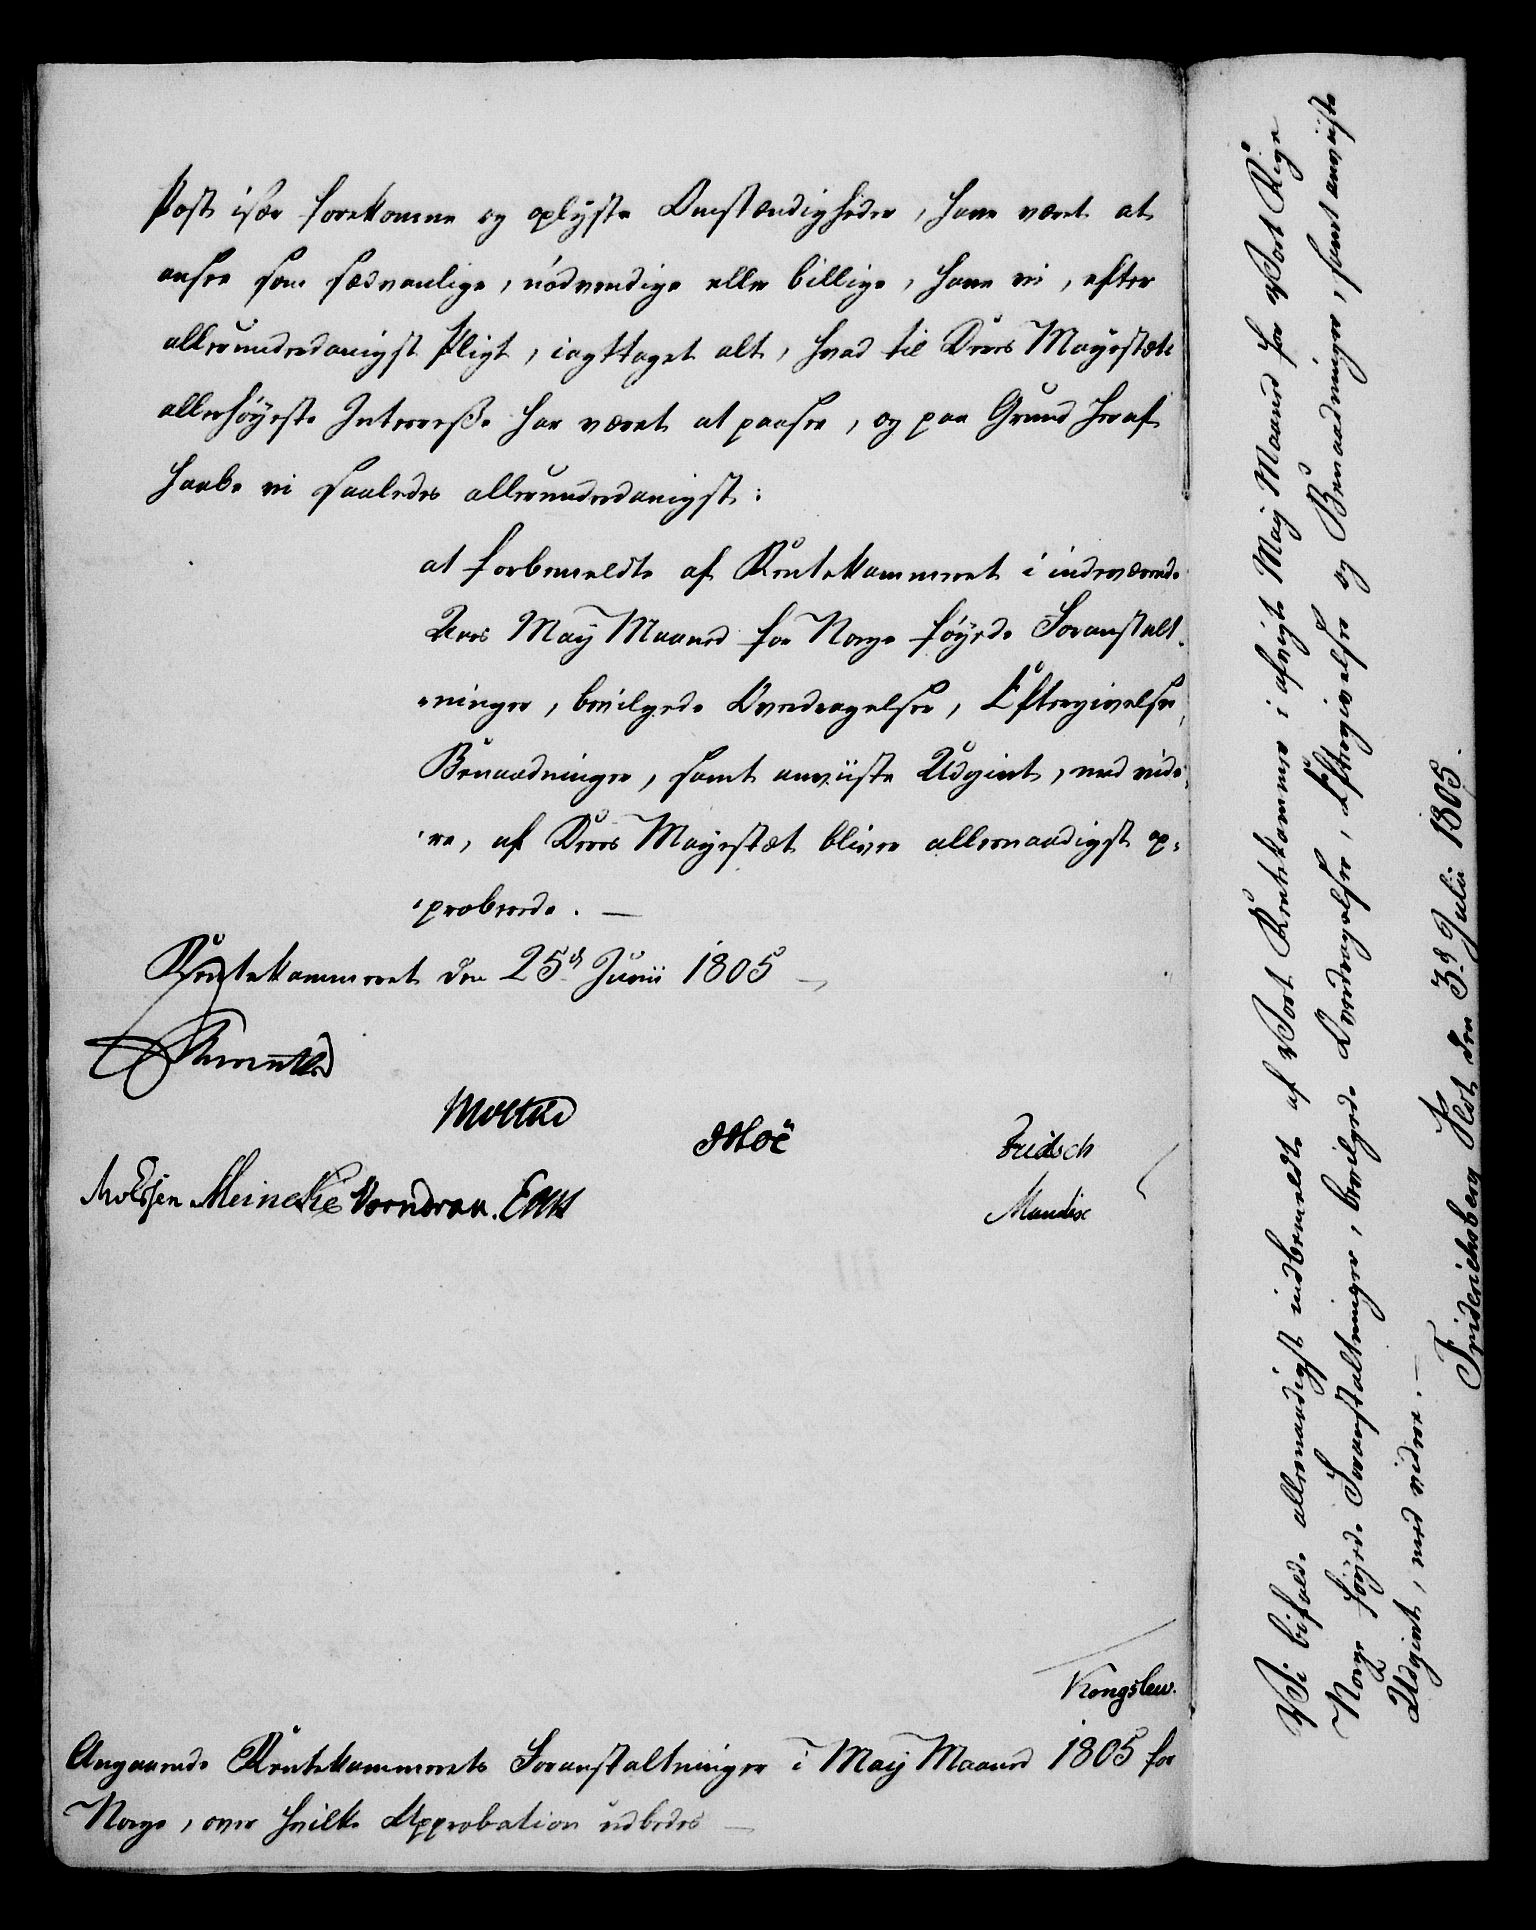 Post især forekomne og oplyste Omstændigheder, have været at
ansee som sædvanlige, nödvendige eller billige, have vi, efter
allerunderdanigst Pligt, iagttaget alt, hvad til Deres Mayestæts
allerhöyeste Interesse har været at paasee, og paa Grund heraf
haabe vi saaledes allerunderdanigst:
at forbemeldte af Rentekammeret i indeværende
Aars Maij Maaned for Norge föyede Foranstalt-
ninger, bevilgede Overdragelser, Eftergivelser,
Benaadninger, samt anviiste Udgivt, med vide-
re, af Deres Mayestæt bliver allernaadigst ap-
proberede. —
Rentekammeret den 25d Junii 1805 —
Reventlow
Moltke
Hoë
Fridsch
Meincke Vorndran.
Kongslew.
Angaaende Rentekammerets Foranstaltninger i Maij Maaned 1805 for
Norge, over hvilke Approbation udbedes —
Vi bifalde allernaadigst indbemeldte af Vort Rentekammer i afvigte Maij Maaned for Vort Rige
Norge föyede Foranstaltninger, bevilgede Overdragelser, Eftergivelser og Benaadninger, samt anviiste
Udgivt, med videre. —
Friderichsberg Slot den 3d Julii 1805.